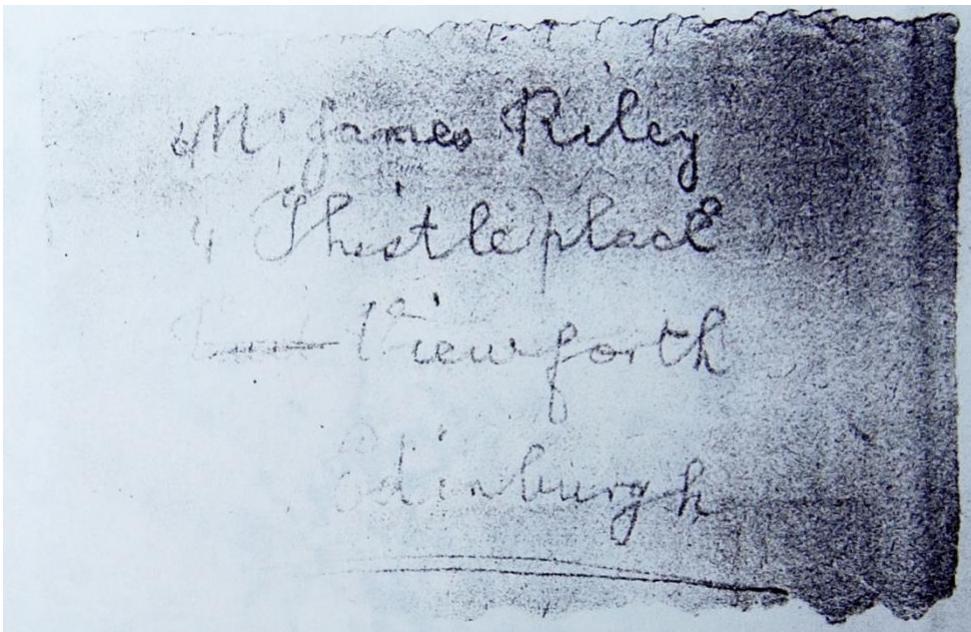 Mr James Riley
4 Thistle place
Viewforth
Edinburgh